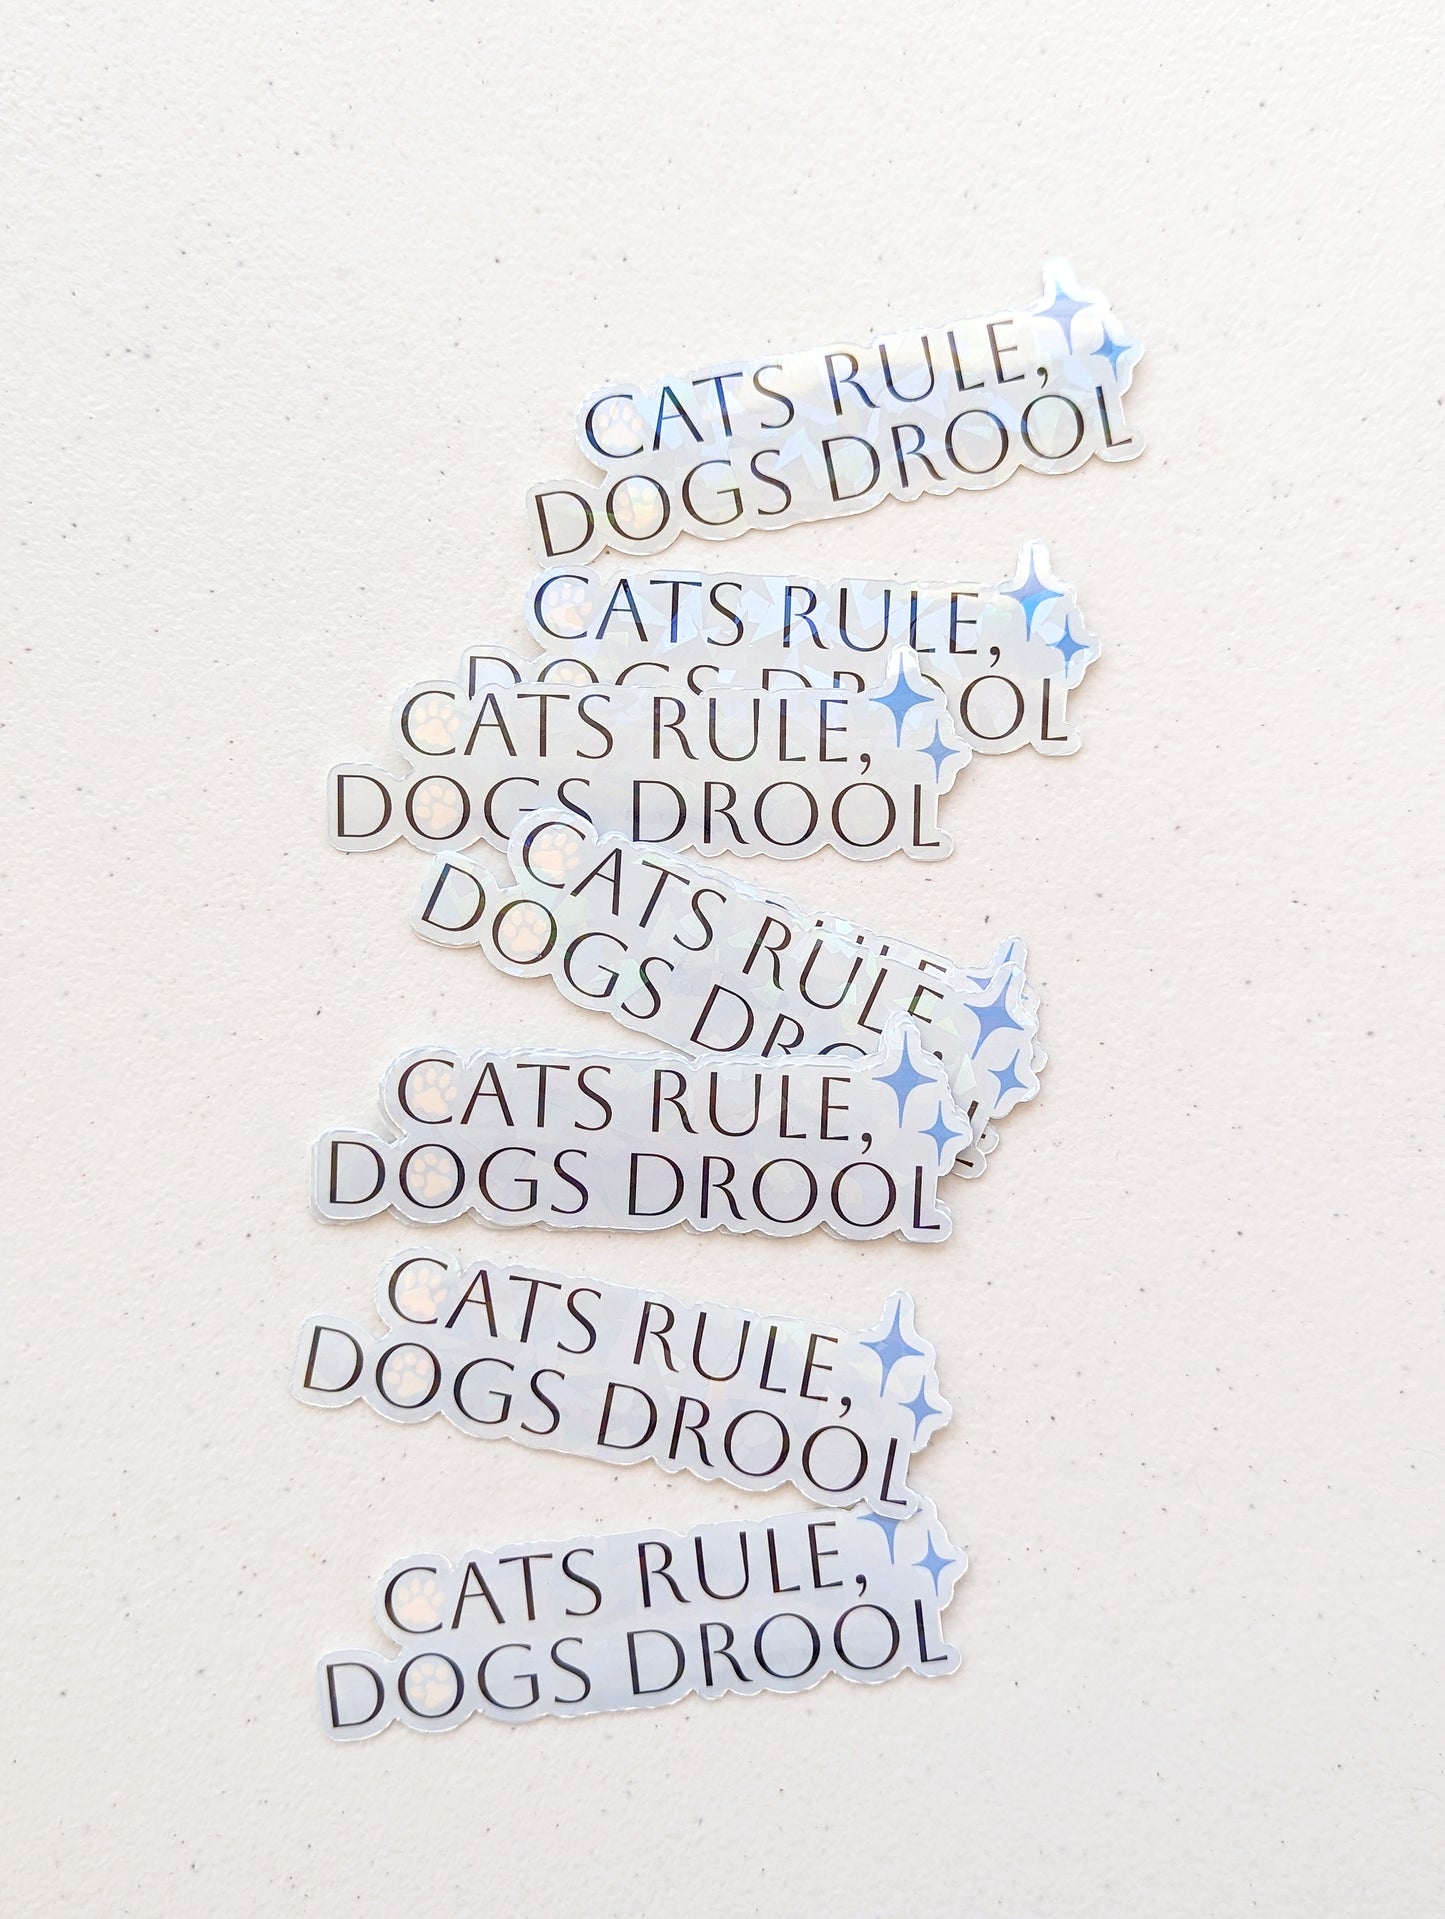 CATS RULE,
DOGS DROOL
CATS RULE,
DOGS DROOL
CATS RULE,
DOGS DROOL
CATS RULE
DOGS
CATS RULE,
DOGS DROOL
CATS RULE,
DOGS DROOL
CATS RULE,
DOGS DROOL